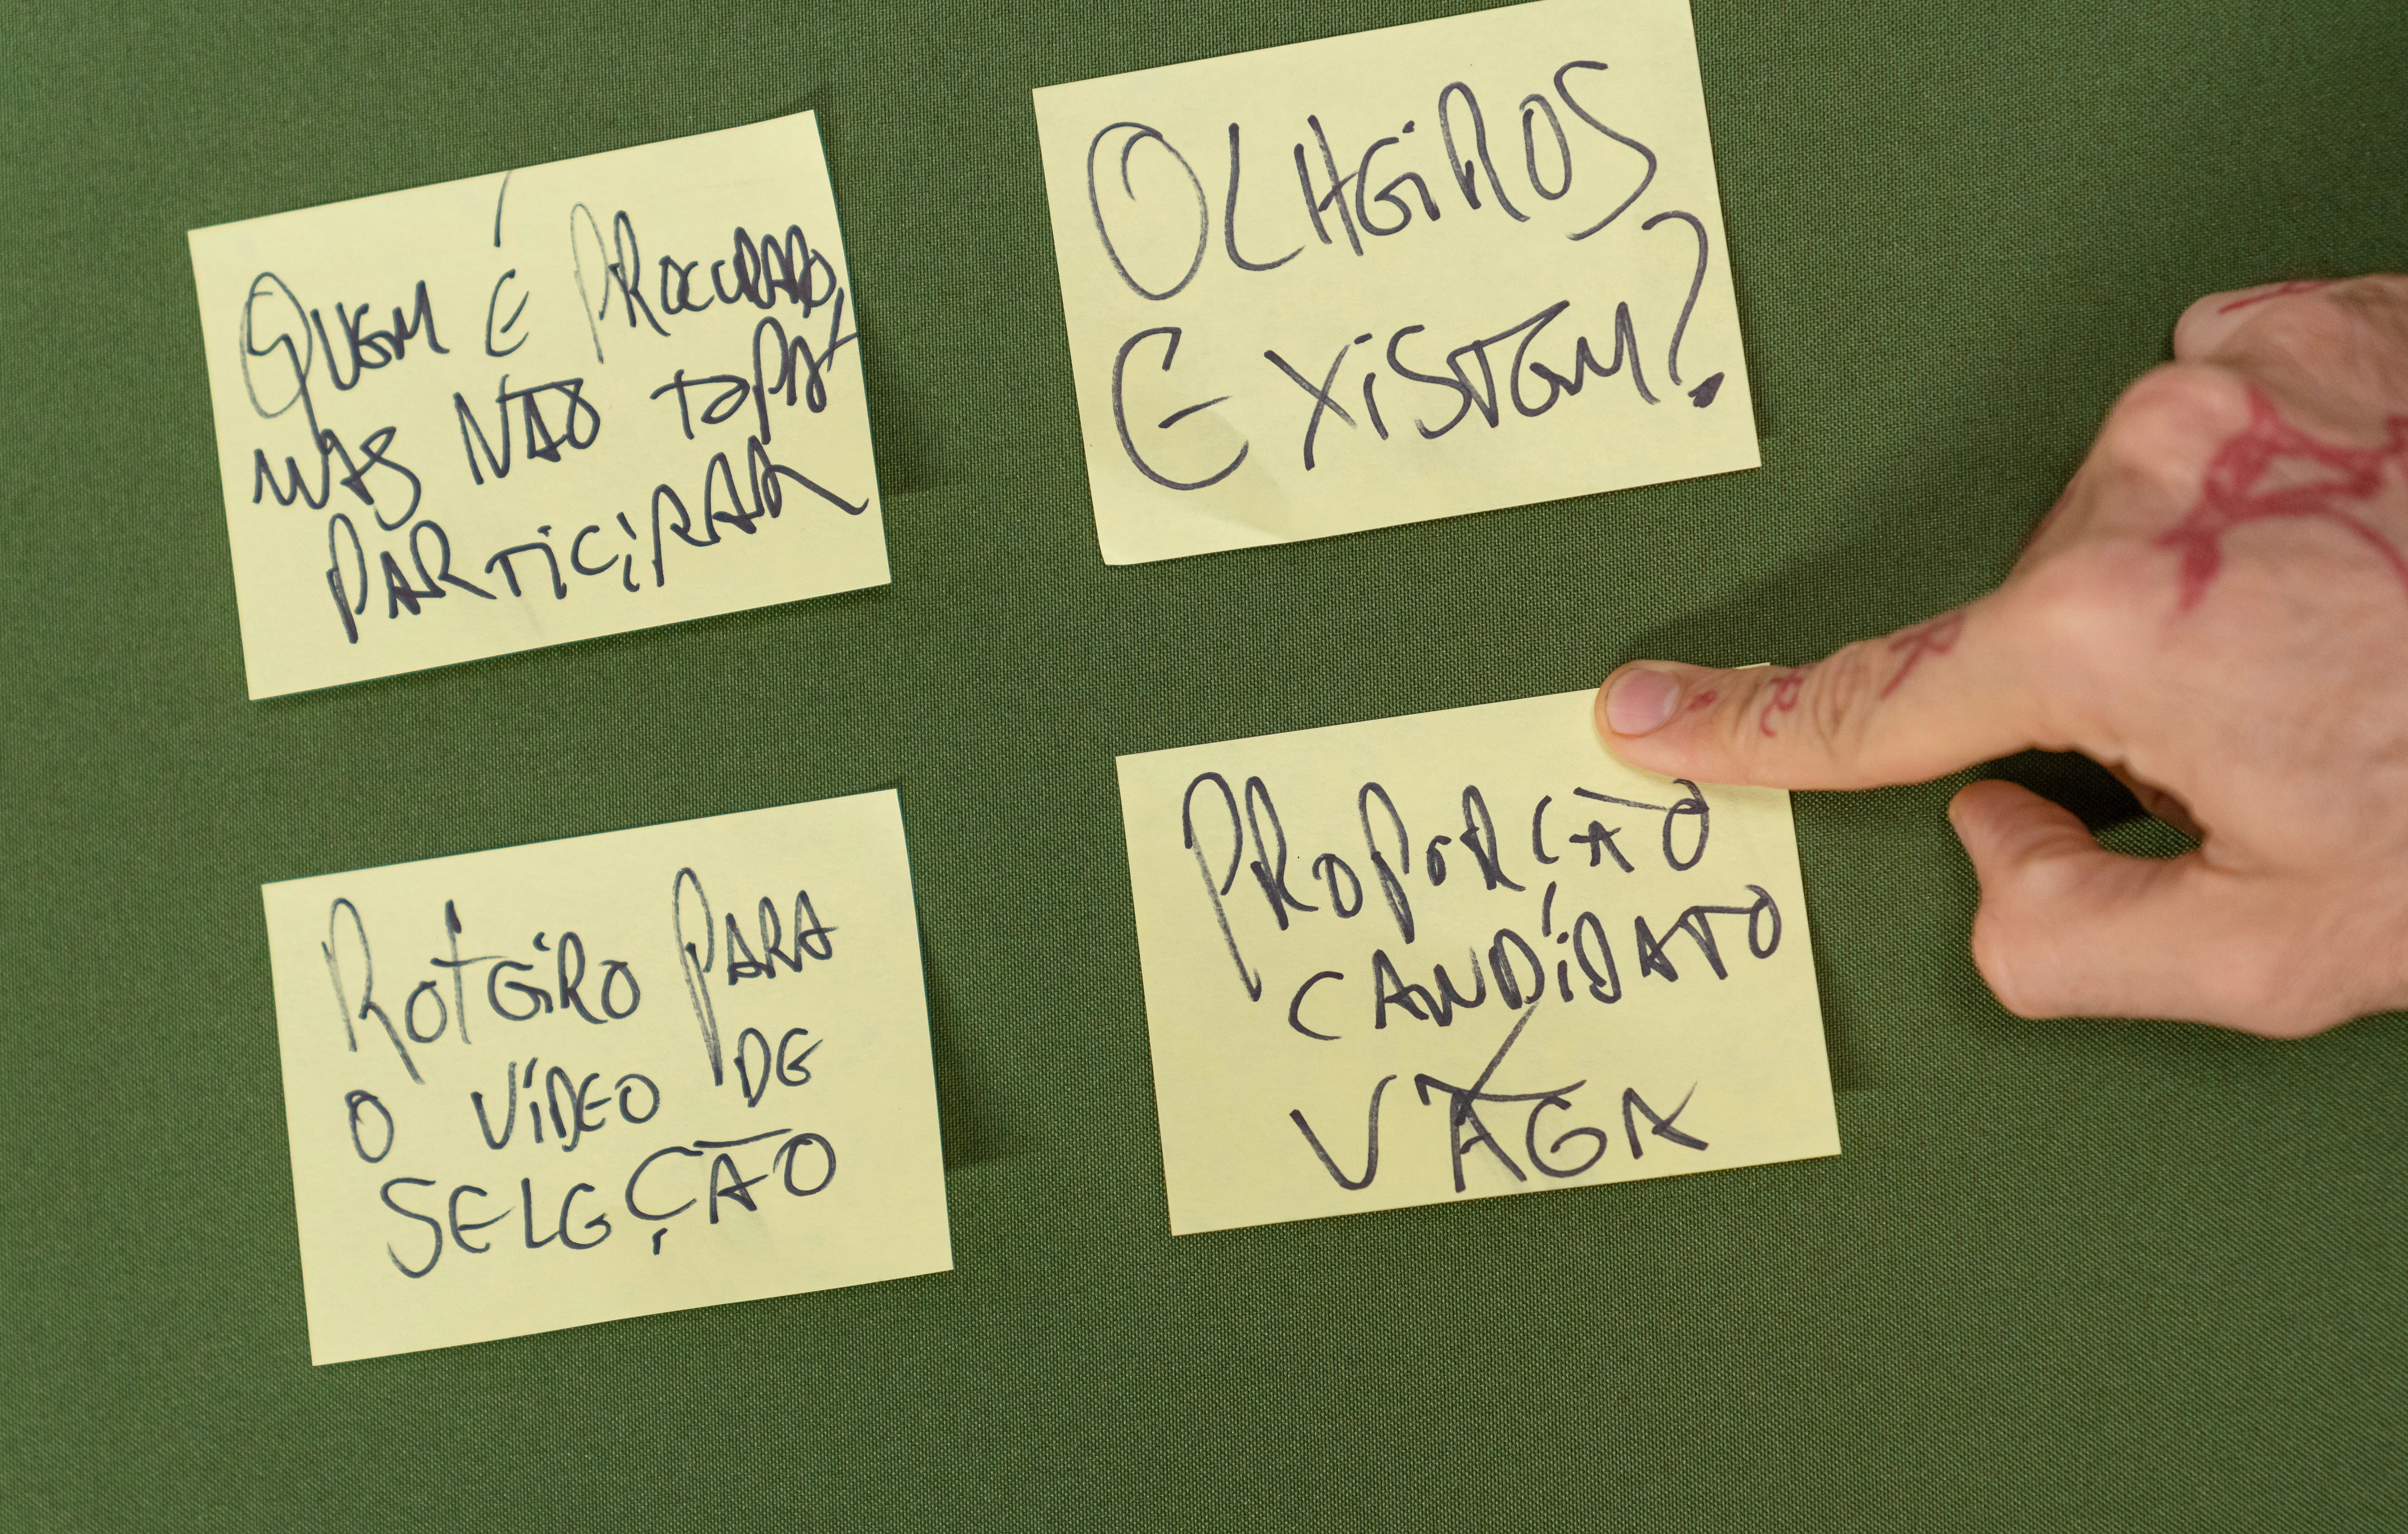 QUEM É PROCURADO,
MAS NÃO TOPA
PARTICIPAR
OLHEIROS
EXISTEM?
ROTEIRO PARA
O VÍDEO DE
SELEÇÃO
PROPORÇÃO
CANDIDATO
VAGA